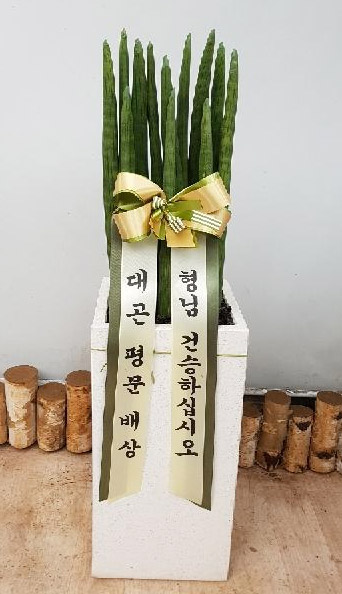 대곤 평문 배상
형님 건승하십시오